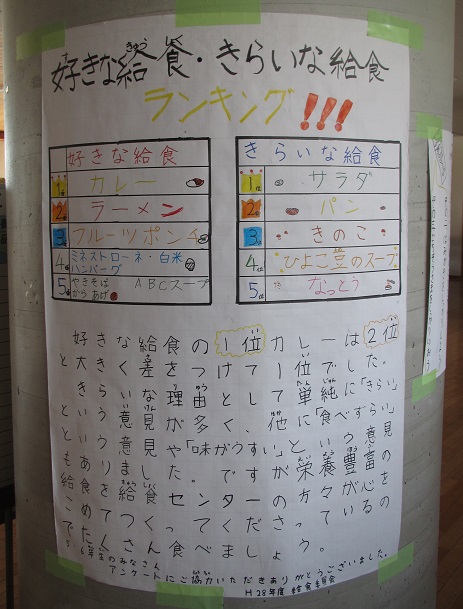 好きな給食・きらいな給食
ランキング!!!
好きな給食
1位 カレー
2位 ラーメン
3位 フルーツポンチ
4位 ミネストローネ・白米
ハンバーグ
5位 やきそば ABCスープ
からあげ
きらいな給食
1位 サラダ
2位 パン
3位 きのこ
4位 ひよこ豆のスープ
5位 なっとう
好きな給食の1位カレーは2位
と大きく差をつけて1位でした。
きらいな理由として単純に「きらい」
という意見が多く、他に「食べずらい」
という意見や「味がうすい」という意見
もありました。ですが栄養豊富の
給食を給食センターの方々が心を
こめてつくってくださっているの
でたくさん食べましょう。
6年生のみなさん
アンケートにご協力いただきありがとうございました。
H28年度 給食委員会